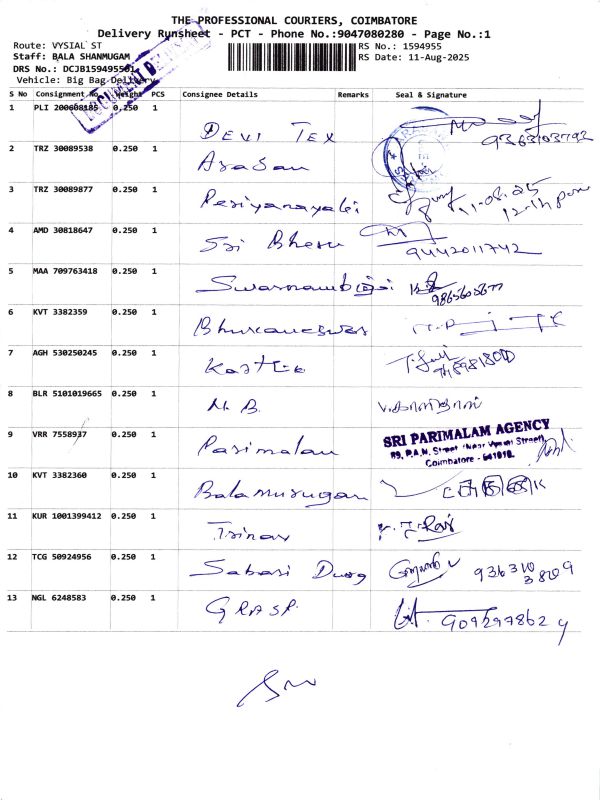 THE PROFESSIONAL COURIERS, COIMBATORE
Delivery Runsheet - PCT - Phone No.:9047080280 - Page No.:1
Route: VYSIAL ST
RS No.: 1594955
Staff: BALA SHANMUGAM
RS Date: 11-Aug-2025
DRS No.: DCJB159495501
Vehicle: Big Bag Delivery
DOCUMENT DELIVERY
S No Consignment No Weight PCS Consignee Details Remarks Seal & Signature
1 PLI 200608185 0.250 1 DEVI TEX 9363103792
2 TRZ 30089538 0.250 1 Arasan
3 TRZ 30089877 0.250 1 Periyanayaki 11-08-25
4 AMD 30818647 0.250 1 Sri 9442011742
5 MAA 709763418 0.250 1
6 KVT 3382359 0.250 1
7 AGH 530250245 0.250 1 Karthic
8 BLR 5101019665 0.250 1 M. B.
9 VRR 7558937 0.250 1 Parimalam
SRI PARIMALAM AGENCY
89, P.A.N. Street (Near Vysial Street)
Coimbatore - 641018.
10 KVT 3382360 0.250 1 Balamurugan
11 KUR 1001399412 0.250 1
12 TCG 50924956 0.250 1 Sabari
13 NGL 6248583 0.250 1 GRASP